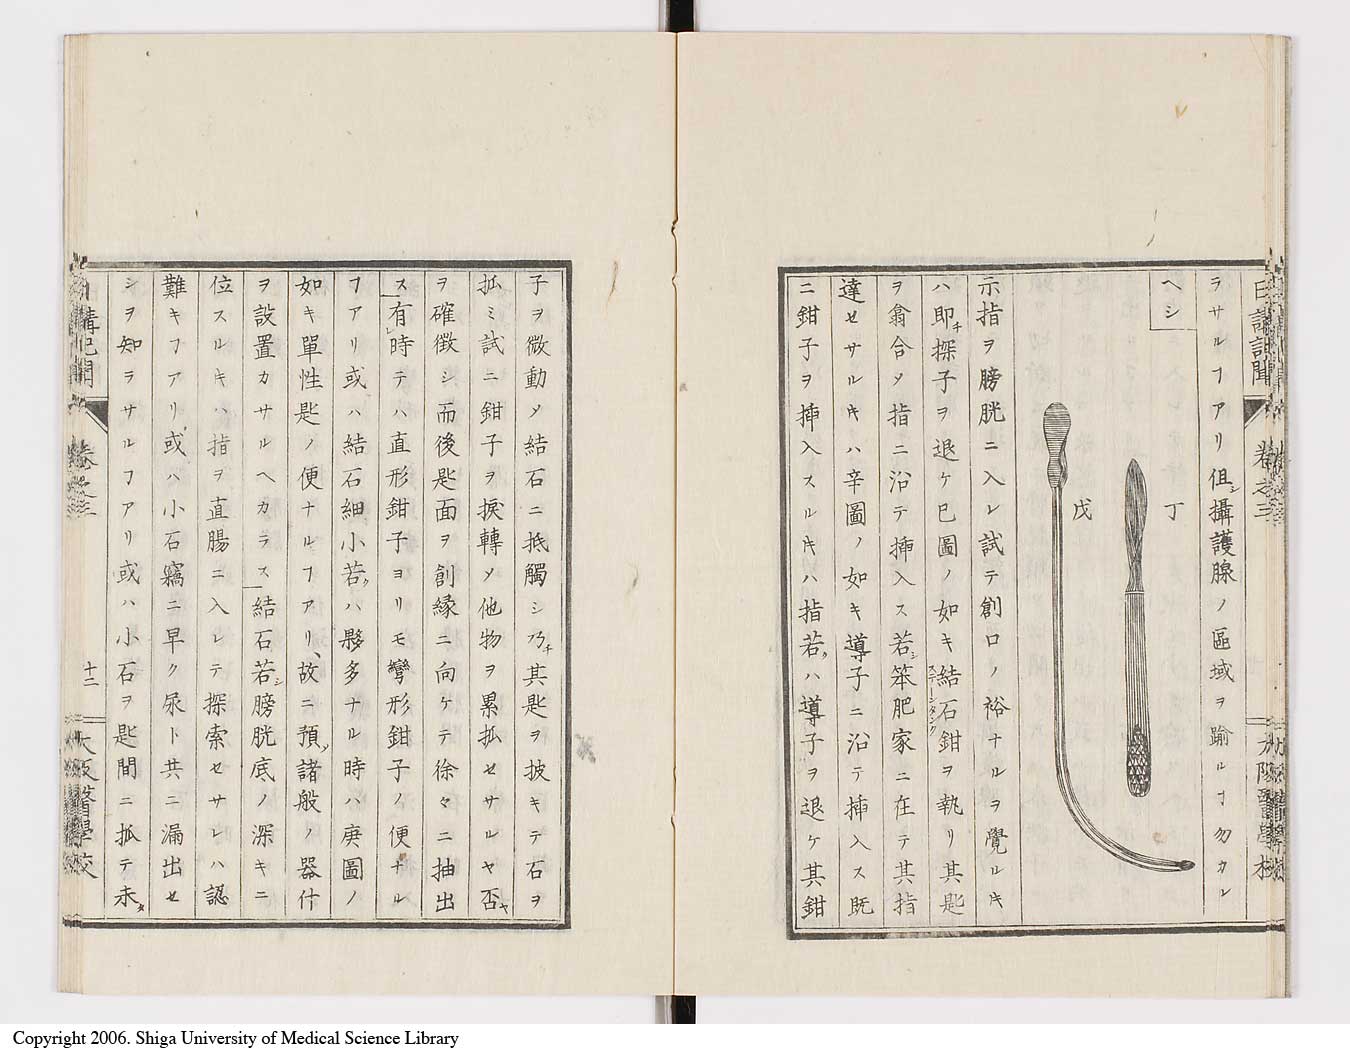 日講記聞
卷之三
大阪醫學校
ラサルヿアリ但シ攝護腺ノ區域ヲ踰ルヿ勿カレ
ヘシ
丁
戊
示指ヲ膀胱ニ入レ試テ創口ノ裕ナルヲ覺ルキ
ハ即チ探子ヲ退ケ巳圖ノ如キ結石鉗ヲ執リ其匙
ヲ翕合メ指ニ沿テ挿入ス若シ笨肥家ニ在テ其指
達セサルキハ辛圖ノ如キ導子ニ沿テ挿入ス既
ニ鉗子ヲ挿入スルキハ指若クハ導子ヲ退ケ其鉗
子ヲ微動メ結石ニ抵觸シ乃チ其匙ヲ披キテ石ヲ
抓ミ試ニ鉗子ヲ捩轉メ他物ヲ累抓セサルヤ否ヤ
ヲ確徴シ而後匙面ヲ創縁ニ向ケテ徐々ニ抽出
ス有時テハ直形鉗子ヨリモ彎形鉗子ノ便ナル
ヿアリ或ハ結石細小若クハ夥多ナル時ハ庚圖ノ
如キ單性匙ノ便ナルヿアリ故ニ預シ諸般ノ器什
ヲ設置カサルヘカラス結石若シ膀胱底ノ深キニ
位スルキハ指ヲ直腸ニ入レテ探索セサレハ認
難キヿアリ或ハ小石竊ニ早ク尿ト共ニ漏出セ
シヲ知ラサルヿアリ或ハ小石ヲ匙間ニ抓テ未タ
日講記聞
卷之三
十二
大阪醫學校
Copyright 2006. Shiga University of Medical Science Library